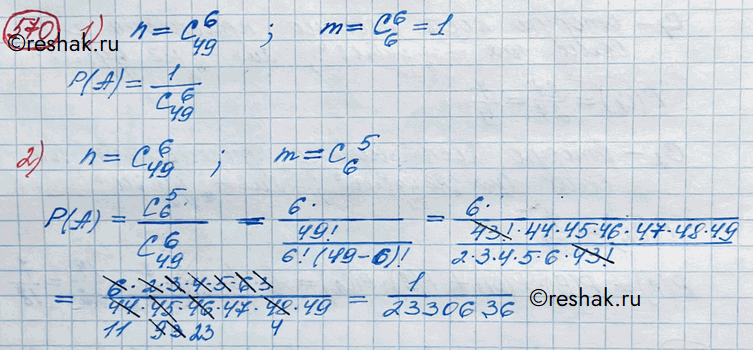 570 1) n = C₄₉⁶ ; m = C₆⁶ = 1
©reshak.ru
P(A) = 1/C₄₉⁶
2) n = C₄₉⁶ ; m = C₆⁵
P(A) = C₆⁵/C₄₉⁶ = 6·/(49!/(6!(49-6)!)) = 6·/((43!·44·45·46·47·48·49)/(2·3·4·5·6·43!))
= (6·2·3·4·5·6 3)/(44·45·46·47·48·49) = 1/2330636
©reshak.ru
11 93 23 4
©reshak.ru